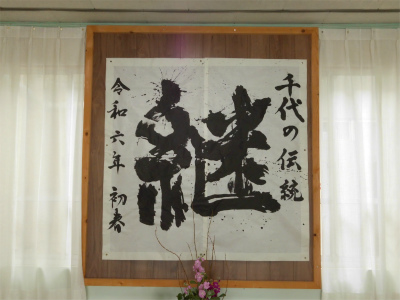 千代の伝統
継
令和六年 初春